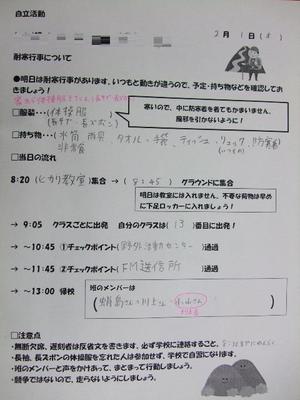 自立活動
2月1日(木)
耐寒行事について
●明日は耐寒行事があります。いつもと動きが違うので、予定・持ち物などを確認しておきましょう!
□服装…(体操服
(長そで・長ズボン)
寒いので、中に防寒着を着てもかまいません。
風邪を引かないように!
□持ち物…(水筒 雨具 タオル・手袋 ティッシュ リュック 防寒着
非常食
(いつもの)
□当日の流れ
8:20(ヒカリ教室)集合 → (8:45) グラウンドに集合
明日は教室には入れません。不要な荷物は早めに下足ロッカーに入れましょう!
→ 9:05 クラスごとに出発 自分のクラスは(13)番目に出発!
→ ~10:45 ①チェックポイント(野外活動センター)通過
→ ~11:45 ②チェックポイント(FM送信所)通過
→ ~13:00 帰校
班のメンバーは
□注意点
・無断欠席、遅刻者は反省文を書きます。必ず学校に連絡すること。
・長袖、長ズボンの体操服を忘れた人は参加せず、学校で自習になります。
・班のメンバーと声をかけあって、まとまって行動しましょう。
・競争ではないので、走らないようにしましょう。